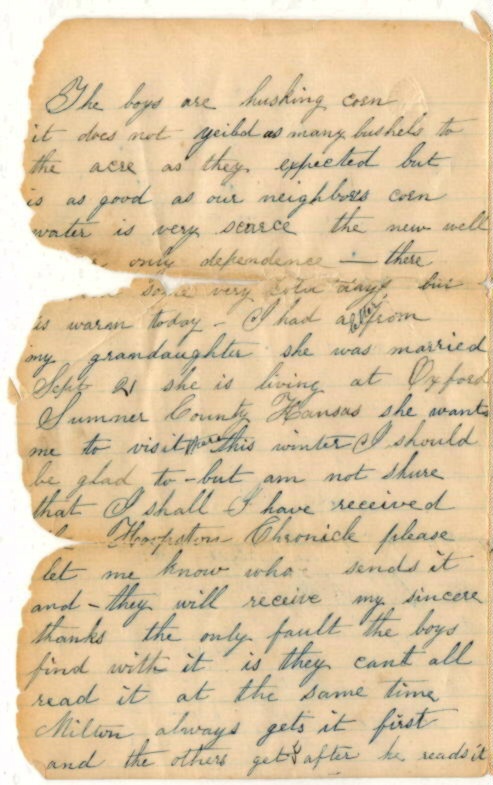 The boys are husking corn
it does not yeibd as many bushels to
the acre as they expected but
is as good as our neighbors corn
water is very scarce the new well
only dependence — there
some very cold days but
is warm today – I had a letter from
my grandaughter she was married
Sept 21 she is living at Oxford
Sumner County Kansas she wants
me to visit there this winter I should
be glad to – but am not shure
that I shall I have received
Hoopston Chronicle please
let me know who sends it
and – they will receive my sincere
thanks the only fault the boys
find with it is they cant all
read it at the same time
Milton always gets it first
and the others get after he reads it